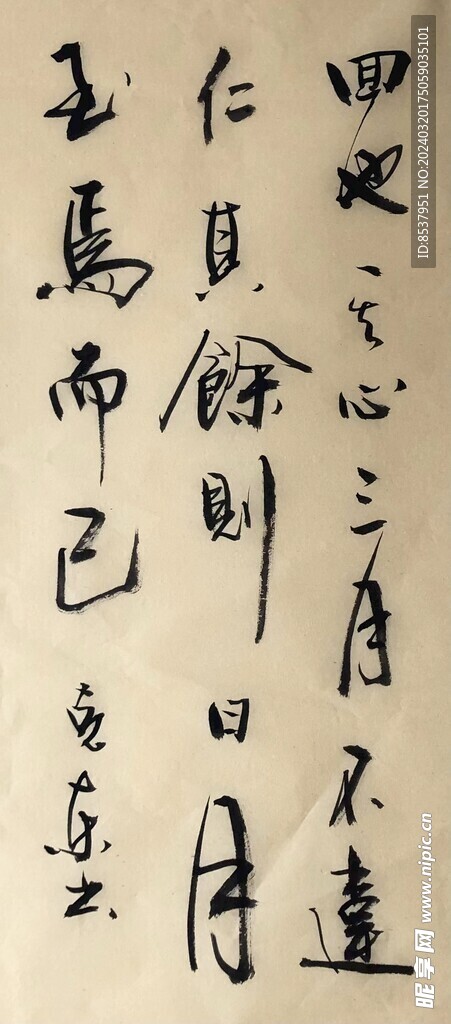 回也其心三月不違
仁其餘則日月
至焉而已 克東书
ID:8537951 NO:20240320175059035101
昵享网 www.nipic.cn